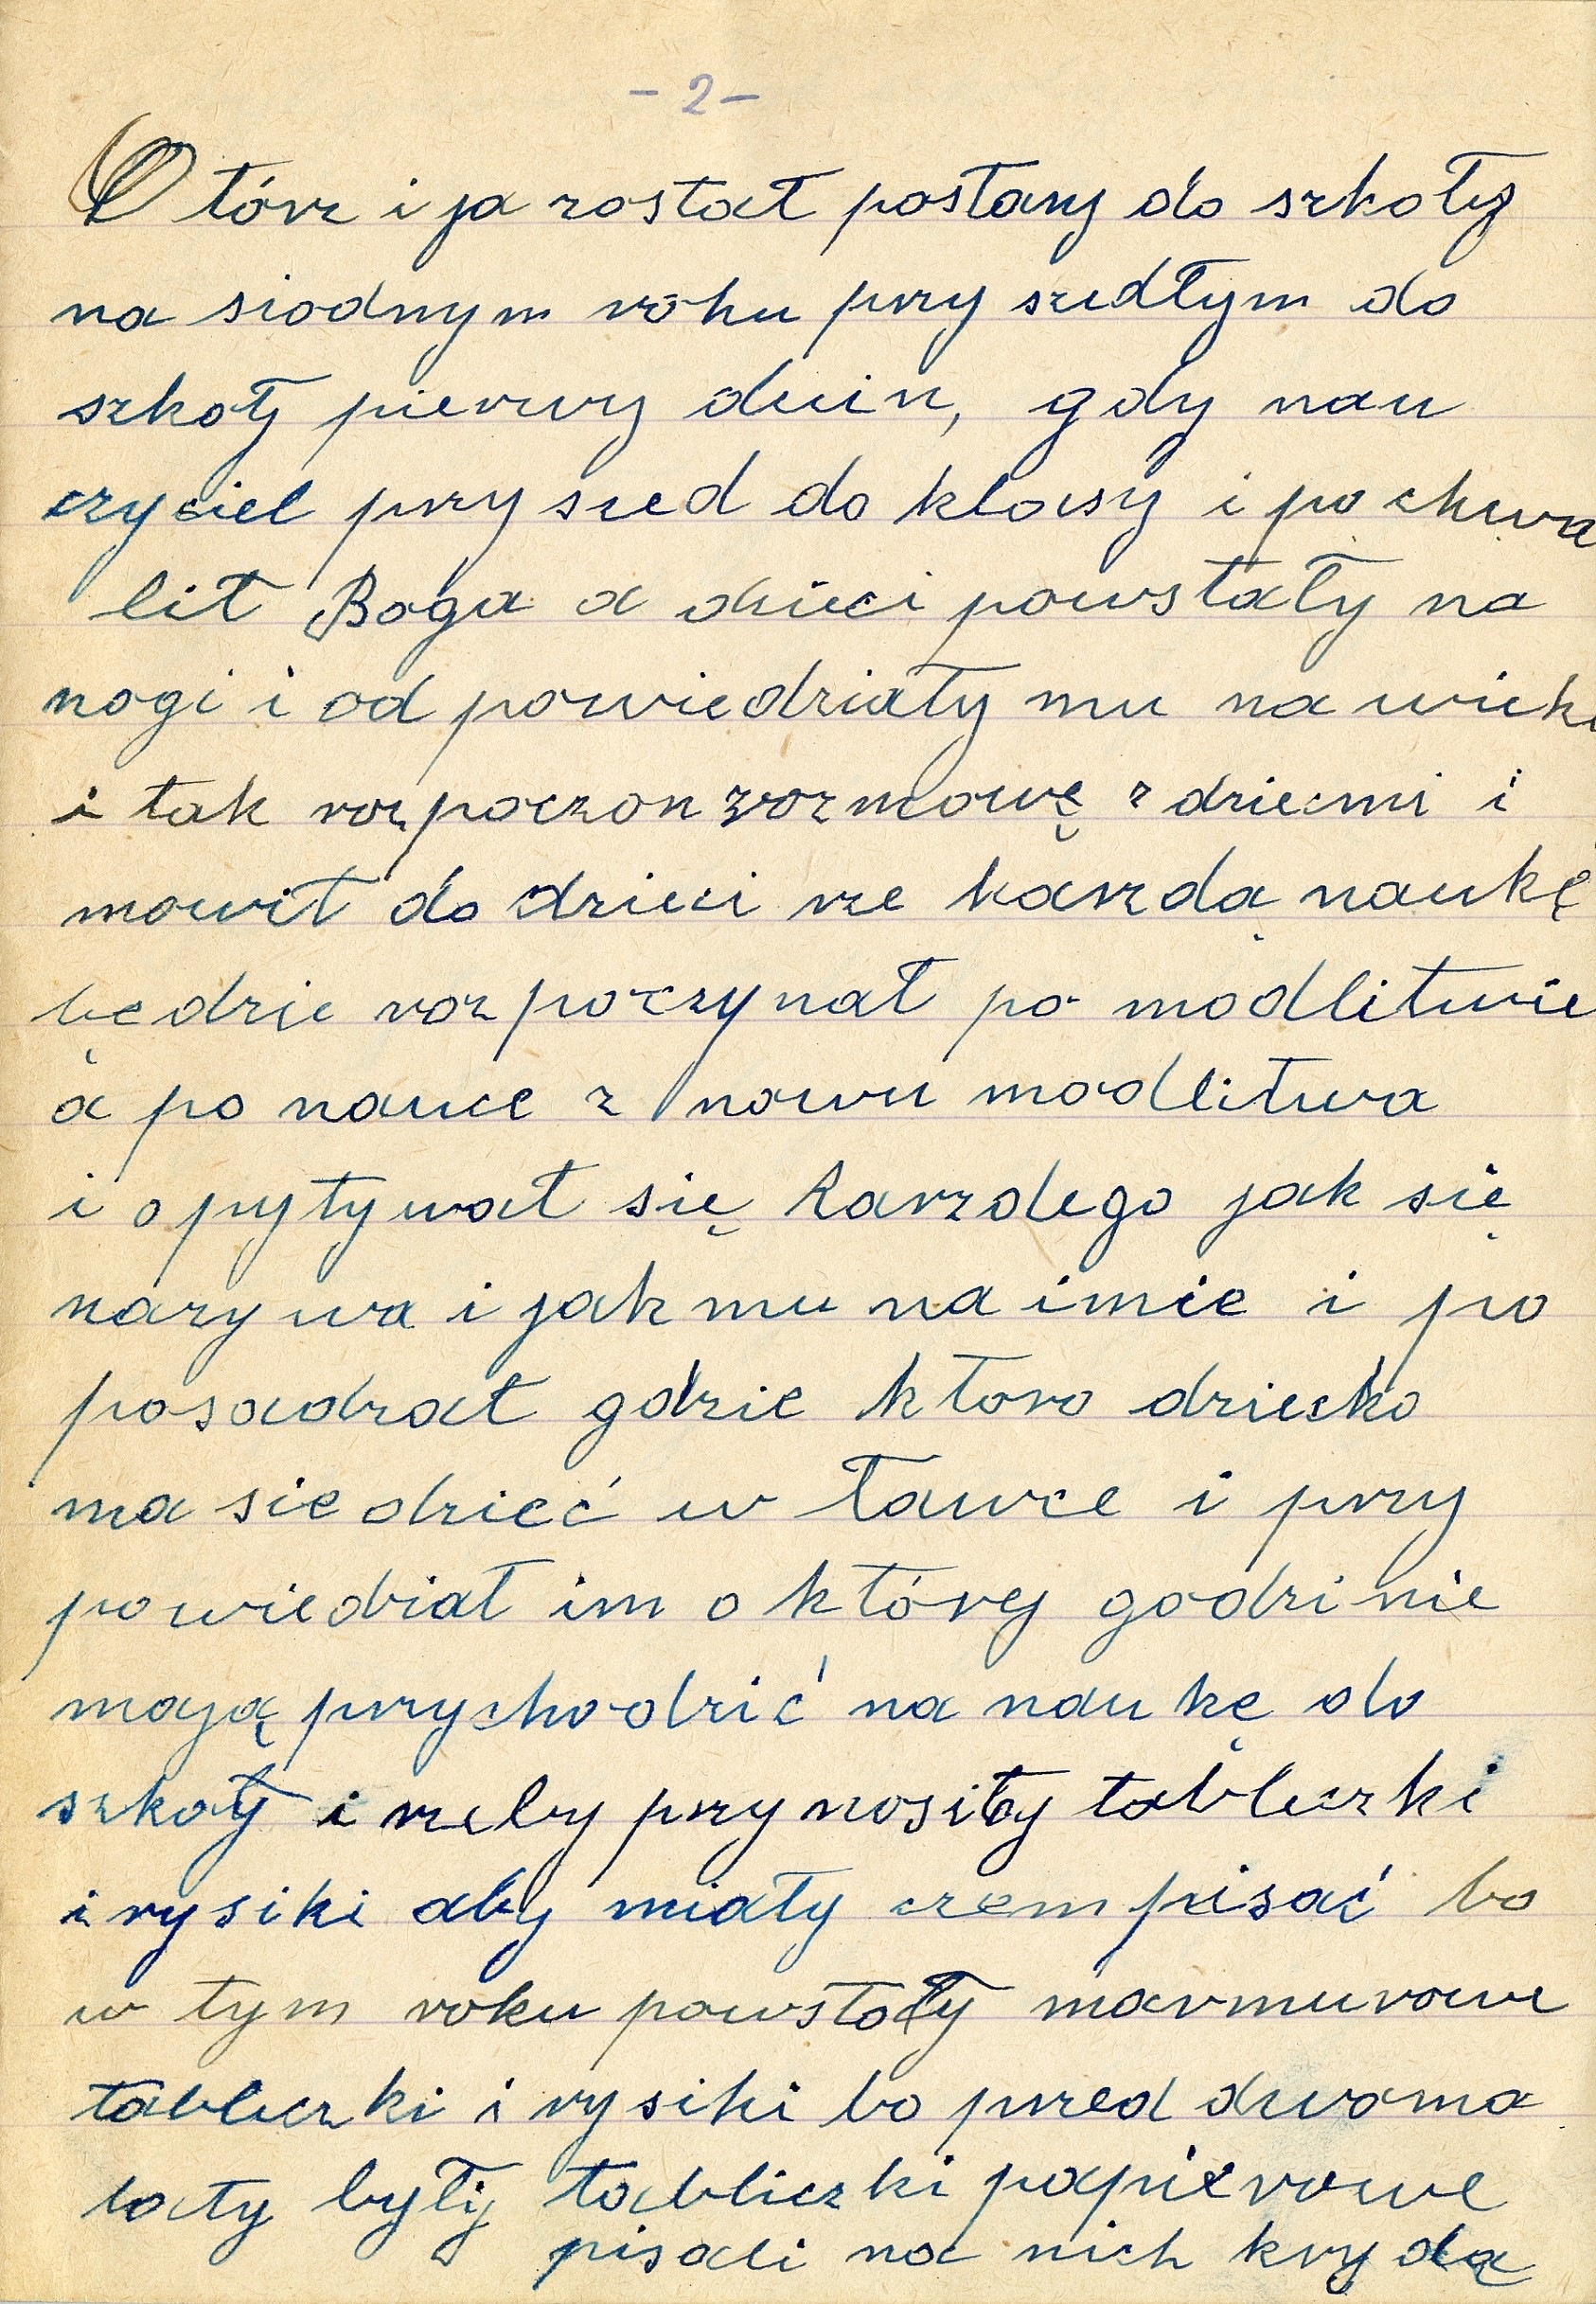 - 2 -
O tórz i ja został posłany do szkoły
na siodnym roku przy szedłym do
szkoły pierwzy dzień, gdy nau
czyciel przy szed do klasy i po chwa
lił Boga a dzieci powstały na
nogi i od powiedziały mu na wieki
i tak roz poczon rozmowę z dziecmi i
mowił do dzieci rze karzdą naukę
będzie roz poczynał po modlitwie
a po nauce z nowu modlitwa
i o pytywał się karzdego jak się
nazy wa i jak mu na imie i po
posadzał gdzie ktoro dziecko
ma sie dzieć w ławce i przy
po wiedział im o której godzi nie
mają przychodzić na naukę do
szkoły i rzeby przy nosiły tabliczki
i rysiki aby miały czem pisać bo
w tym roku powstały marmurowe
tabliczki i rysiki bo przed dwoma
laty były tabliczki papierowe
pisali na nich krydą